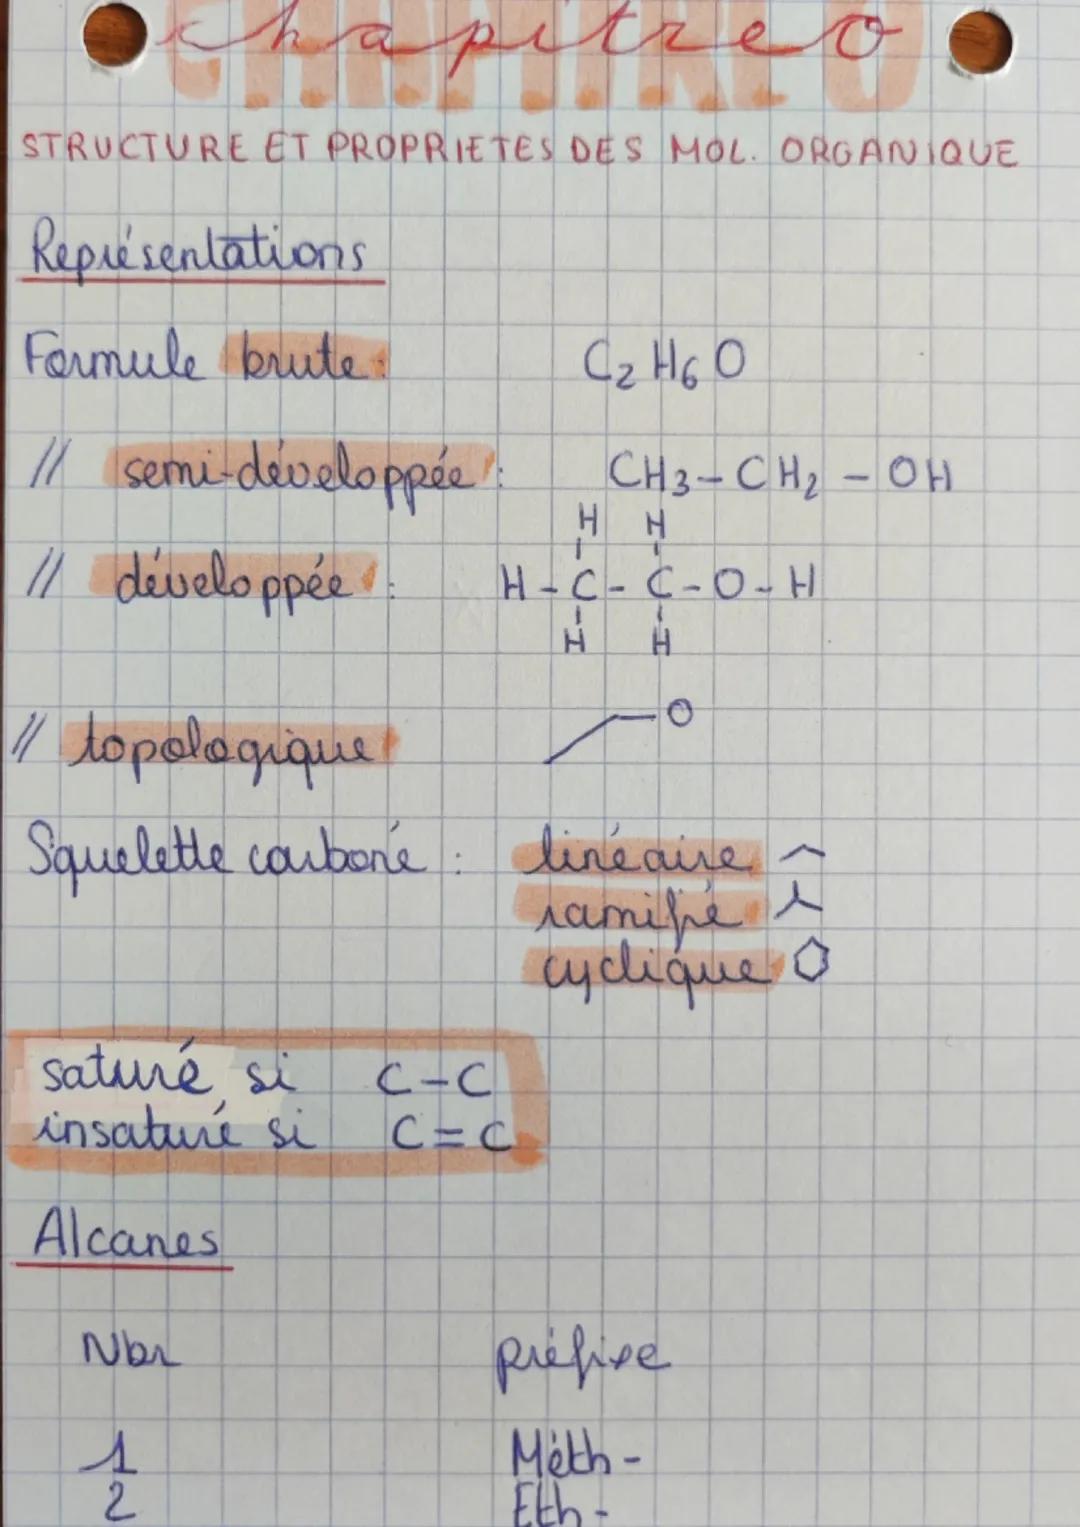 Chapitre 0
CHAPITRE 0
STRUCTURE ET PROPRIETES DES MOL. ORGANIQUE
Représentations
Formule brute : C2 H6 O
// semi-développée : CH3 - CH2 - OH
H H
// développée : H - C - C - O - H
H H
// topologique O
Squelette carboné : linéaire
ramifié
cyclique
saturé si C - C
insaturé si C = C
Alcanes
Nbr préfixe
1 Méth -
2 Eth -